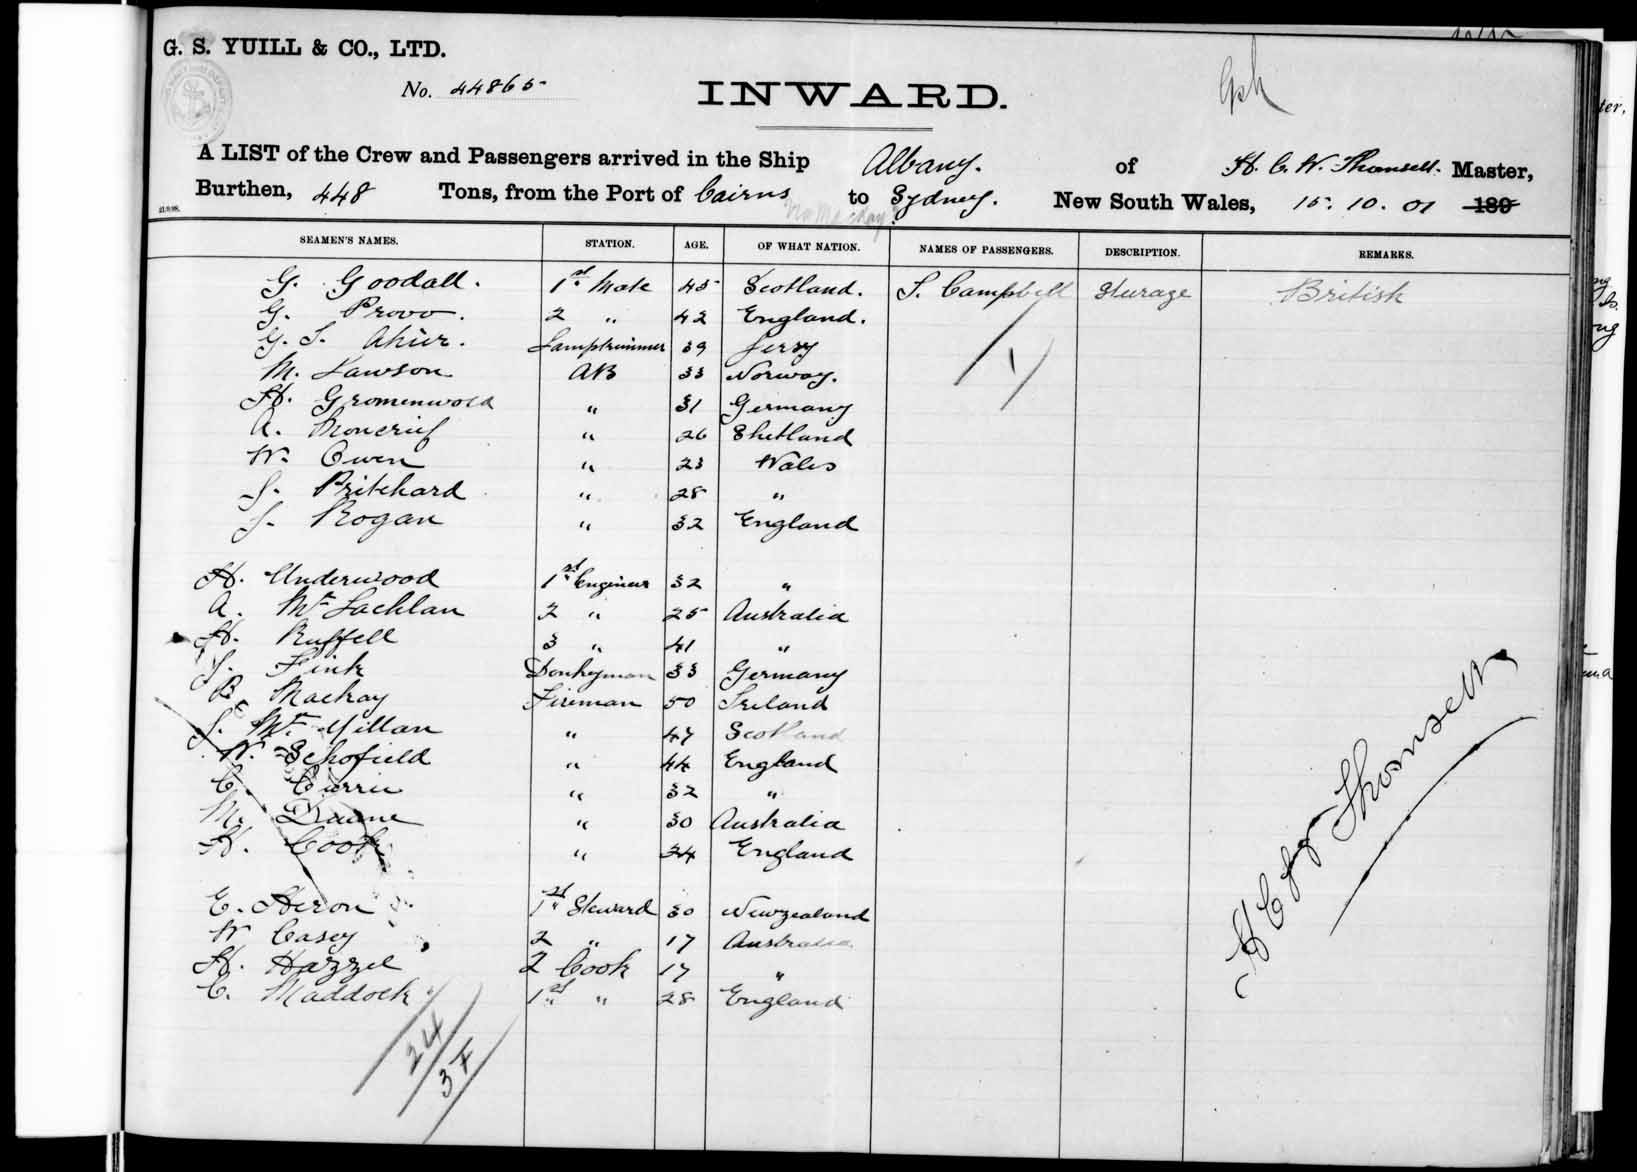 G. S. YUILL & CO., LTD.
No. 44865
INWARD.
A LIST of the Crew and Passengers arrived in the Ship Albany. of H. C. W. Thomsett. Master,
Burthen, 448 Tons, from the Port of Cairns to Sydney. New South Wales, 15. 10. 01 189
via Mackay
SEAMEN'S NAMES. STATION. AGE. OF WHAT NATION. NAMES OF PASSENGERS. DESCRIPTION. REMARKS.
G. Goodall. 1st Mate 45 Scotland. S. Campbell Sturage British
G. Provo. 2 " 42 England.
G. S. Ahier. Lamptrimmer 39 Jersy
M. Lawson AB 33 Norway.
H. Gromenwold " 31 Germany
A. Moncrief " 26 Shetland
W. Owen " 23 Wales
J. Pritchard " 28 "
J. Rogan " 32 England
H. Underwood 1st Engineer 32 "
A. McLachlan 2 " 25 Australia
H. Ruffell 3 " 41 "
J. Fink Donkeyman 33 Germany
B. Mackay Fireman 50 Ireland
J. McMillan " 47 Scotland
W. Schofield " 44 England
C. Currie " 32 "
M. Duane " 30 Australia
H. Cook " 24 England
E. Heron 1st Steward 30 Newzealand
W Casey 2 " 17 Australia
H. Hazzel 2 Cook 17 "
C. Maddock 1st " 28 England
24
3 F
H C W Thomsett